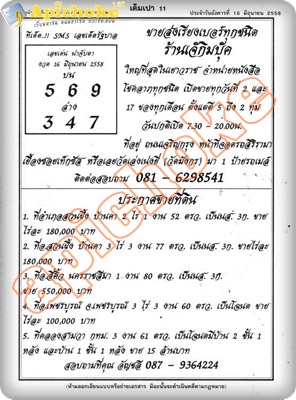 Apichoke
เต็มเปา 11
ประจำวันอังคารที่ 16 มิถุนายน 2558
ทีเด็ด..!! SMS เลขเด็ดรัฐบาล
เลขเด่น นำจับตา
งวด 16 มิถุนายน 2558
บน
5 6 9
ล่าง
3 4 7
ขายส่งเรียงเบอร์ทุกชนิด
ร้านเจ๊กิมบุ๊ค
ใหญ่ที่สุดในเยาวราช จำหน่ายหนังสือ
โชคลาภทุกชนิด เปิดขายทุกวันที่ 2 และ
17 ของทุกเดือน ตั้งแต่ตี 5 ปิด 2 ทุ่ม
วันปกติเปิด 7.30 - 20.00น.
ที่อยู่ ถนนเจริญกรุง หน้าที่จอดรถสิริรามา
เยื้องซอยเท็กซัส หรือเลยวัดเล่งเน่ยยี่ (วัดมังกร) มา 1 ป้ายรถเมล์
ติดต่อสอบถาม 081 - 6298541
ประกาศขายที่ดิน
1. ที่อำเภอสวนผึ้ง บ้านคา 2 ไร่ 1 งาน 52 ตรว. เป็นนส. 3ก. ขาย
ไร่ละ 180,000 บาท
2. ที่สวนผึ้ง บ้านคา 3 ไร่ 3 งาน 77 ตรว. เป็นนส. 3ก. ขายไร่ละ
180,000 บาท
3. ที่สีคิ้ว นครราชสีมา 1 งาน 80 ตรว. เป็นนส. 3ก.
ขาย 550,000 บาท
4. ที่เพชรบูรณ์ จ.เพชรบูรณ์ 3 ไร่ 3 งาน 60 ตรว. เป็นโฉนด ขาย
ไร่ละ 100,000 บาท
5. ที่คลองสามวา กทม. 3 งาน 61 ตรว. เป็นโฉนดมีบ้าน 2 ชั้น 1
หลัง และบ้าน 1 ชั้น 1 หลัง ขาย 15 ล้านบาท
สอบถามที่คุณ อัญชลี 087 - 9364224
(ห้ามลอกเลียนแบบหรือถ่ายเอกสาร มิฉะนั้นจะดำเนินคดีตามกฎหมาย)
apichoke